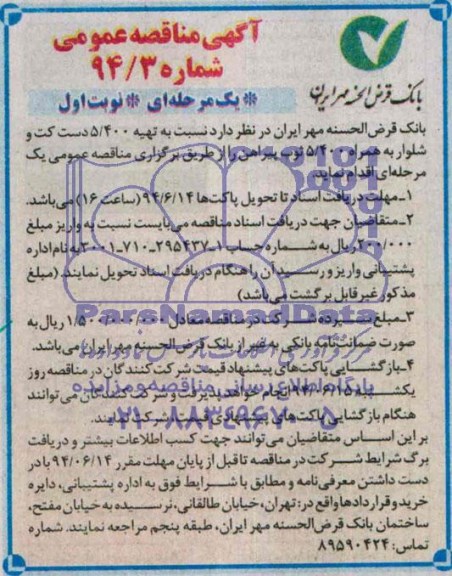 آگهی مناقصه عمومی
شماره ۹۴/۳
* یک مرحله‌ای * نوبت اول
بانک قرض الحسنه مهر ایران
بانک قرض‌الحسنه مهر ایران در نظر دارد نسبت به تهیه ۵/۴۰۰ دست کت و
شلوار به همراه ۵/۴۰۰ ثوب پیراهن را از طریق برگزاری مناقصه عمومی یک
مرحله‌ای اقدام نماید.
۱ـ مهلت دریافت اسناد تا تحویل پاکت‌ها ۹۴/۶/۱۴ (ساعت ۱۶) می‌باشد.
۲ـ متقاضیان جهت دریافت اسناد مناقصه می‌بایست نسبت به واریز مبلغ
۲۰۰/۰۰۰ ریال به شماره حساب ۱ـ۲۹۵۴۳۷ـ۷۱۰ـ۳۰۰۱ به نام اداره
پشتیبانی واریز و رسید آن را هنگام دریافت اسناد تحویل نمایند. (مبلغ
مذکور غیرقابل برگشت می‌باشد)
۳ـ مبلغ سپرده شرکت در مناقصه معادل ۱/۵۰۰/۰۰۰/۰۰۰ ریال به
صورت ضمانتنامه بانکی به غیر از بانک قرض‌الحسنه مهر ایران می‌باشد.
۴ـ بازگشایی پاکت‌های پیشنهاد قیمت شرکت‌کنندگان در مناقصه روز
یکشنبه ۹۴/۰۶/۱۵ انجام خواهد پذیرفت و شرکت‌کنندگان می‌توانند
هنگام بازگشایی پاکت‌های پیشنهادی قیمت شرکت نمایند.
بر این اساس متقاضیان می‌توانند جهت کسب اطلاعات بیشتر و دریافت
برگ شرایط شرکت در مناقصه تا قبل از پایان مهلت مقرر ۹۴/۰۶/۱۴ با در
دست داشتن معرفی‌نامه و مطابق با شرایط فوق به اداره پشتیبانی، دایره
خرید و قراردادها واقع در: تهران، خیابان طالقانی، نرسیده به خیابان مفتح،
ساختمان بانک قرض‌الحسنه مهر ایران، طبقه پنجم مراجعه نمایند. شماره
تماس: ۸۹۵۹۰۴۲۴
ParsNamadData
پایگاه اطلاع رسانی مناقصه و مزایده
۰۲۱-۸۸۳۴۹۶۷۰-۵